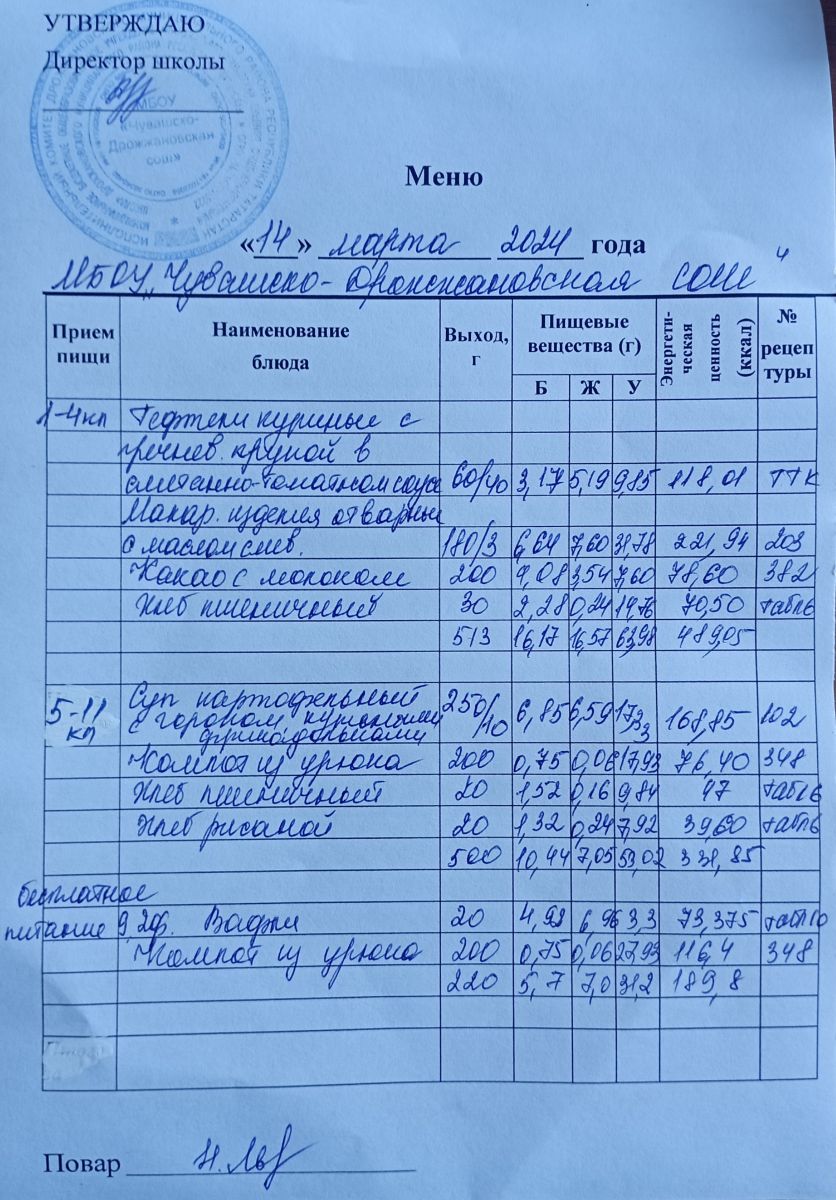 УТВЕРЖДАЮ
Директор школы
МБОУ
«Чувашско-
Дрожжановская
сош»
Меню
«14» марта 2024 года
МБОУ „Чувашско-Дрожжановская СОШ“
Прием пищи Наименование блюда Выход, г Пищевые вещества (г) Б Ж У Энергети-ческая ценность (ккал) № рецеп туры
1-4кл Тефтели куриные с
гречнев. крупой в
сметанно-томатном соусе 60/40 3,17 5,19 9,85 118,01 ТТК
Макар. изделия отварные
с маслом слив. 180/3 6,64 7,60 31,78 221,94 203
Какао с молоком 200 4,08 3,54 7,60 78,60 382
Хлеб пшеничный 30 2,28 0,24 14,76 70,50 табл6
513 16,17 16,57 63,98 489,05
5-11 кл Суп картофельный
с горохом, куриными
фрикадельками 250/10 6,85 6,59 17,33 168,85 102
Компот из урюка 200 0,75 0,06 17,93 76,40 348
Хлеб пшеничный 20 1,52 0,16 9,84 47 табл6
Хлеб ржаной 20 1,32 0,24 7,92 39,60 табл6
500 10,44 7,05 53,02 331,85
бесплатное
питание 9,2ф. Вафли 20 4,98 6,96 3,3 73,375 табл10
Компот из урюка 200 0,75 0,06 27,93 116,4 348
220 5,7 7,0 31,2 189,8
Повар